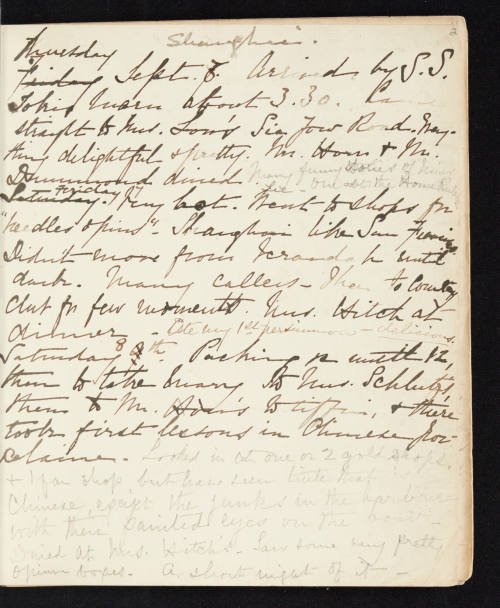 2
Shanghai.
Thursday
Friday Sept. 6. Arrived by S.S.
Tokio Maru about 3.30. Came
straight to Mrs. Low's Sia Jow Road. Every-
thing delightful & pretty. Mr. Horn & Mr.
Drummond dined. Many funny stories of
Saturday. Friday 7. Very hot. Went to shops for
"needles & pins". Shanghai like San
Didn't move from Veranda h until
dark. Many callers - Then to Country
Club for few moments. Mrs. Hitch at
dinner - Ate my 1st persimmon - delicious.
Saturday 8th. Packing n until 12,
then to take Mary to Mrs. Schlub's,
then to Mr. Horn's to tiffin, & there
took first lessons in Chinese Por-
celaine. Looked in at one or 2 gold shops.
& 1 fan shop but have seen little that
Chinese, except the junks in the harbour
with their painted eyes on the
Dined at Mrs. Hitch's. Saw some very pretty
opium boxes. A short night of it -